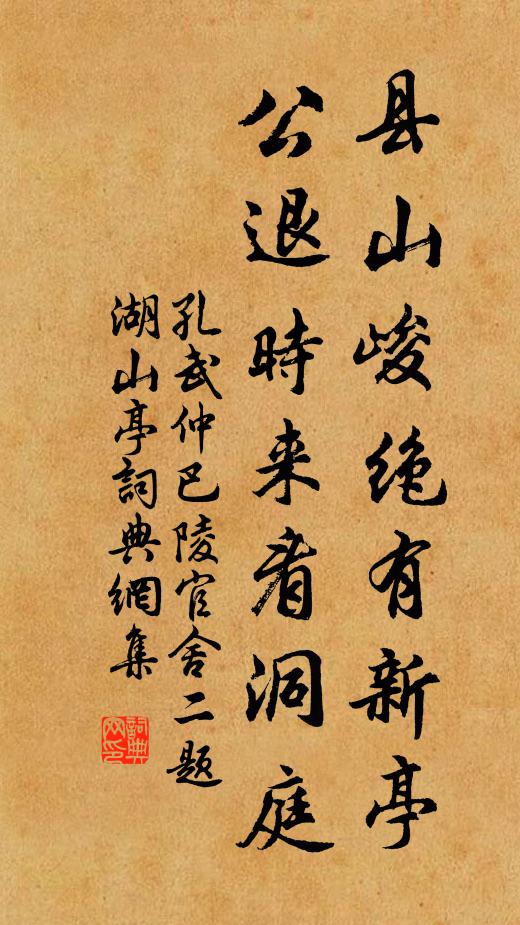 县山峻绝有新亭
公退時来看洞庭
孔武仲巴陵官舍二题
湖山亭詞典網集
詞典网印